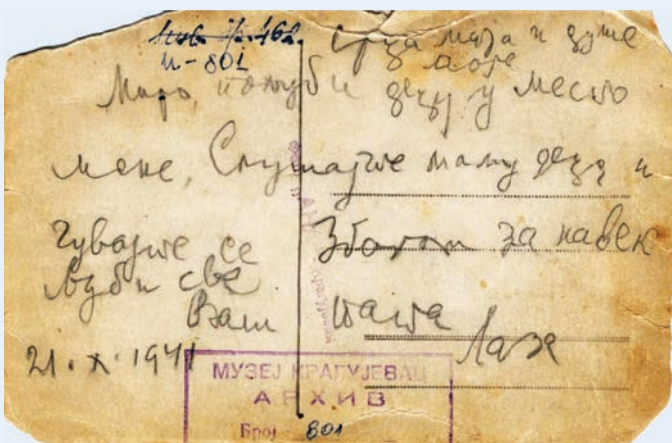 И-801
Срца моја и душе
моје
Маро, пољуби децу у место
мене, Слушајте маму децо и
чувајте се Збогом за навек
Љуби све
Ваш тата
Лаза
21. X. 1941
МУЗЕЈ КРАГУЈЕВАЦ
АРХИВ
Број 801